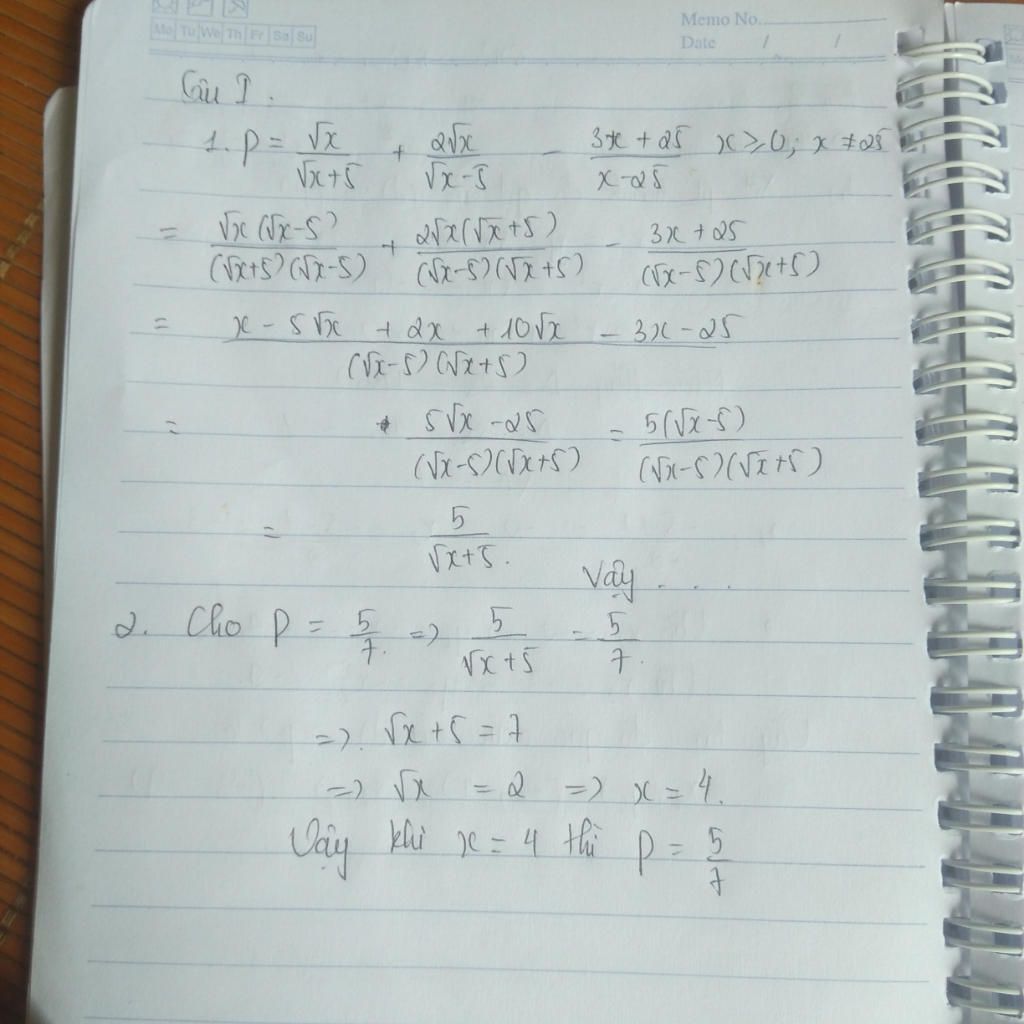 Memo No.
Mo Tu We Th Fr Sa Su
Date / /
Câu I.
1. P = √x/(√x+5) + 2√x/(√x-5) - (3x+25)/(x-25) x ≥ 0; x ≠ 25
= √x(√x-5)/((√x+5)(√x-5)) + 2√x(√x+5)/((√x-5)(√x+5)) - (3x+25)/((√x-5)(√x+5))
= (x - 5√x + 2x + 10√x - 3x - 25)/((√x-5)(√x+5))
= (5√x - 25)/((√x-5)(√x+5)) = 5(√x-5)/((√x-5)(√x+5))
= 5/(√x+5).
Vậy . . .
2. Cho P = 5/7. => 5/(√x+5) = 5/7.
=> √x + 5 = 7
=> √x = 2 => x = 4.
Vậy khi x = 4 thì P = 5/7